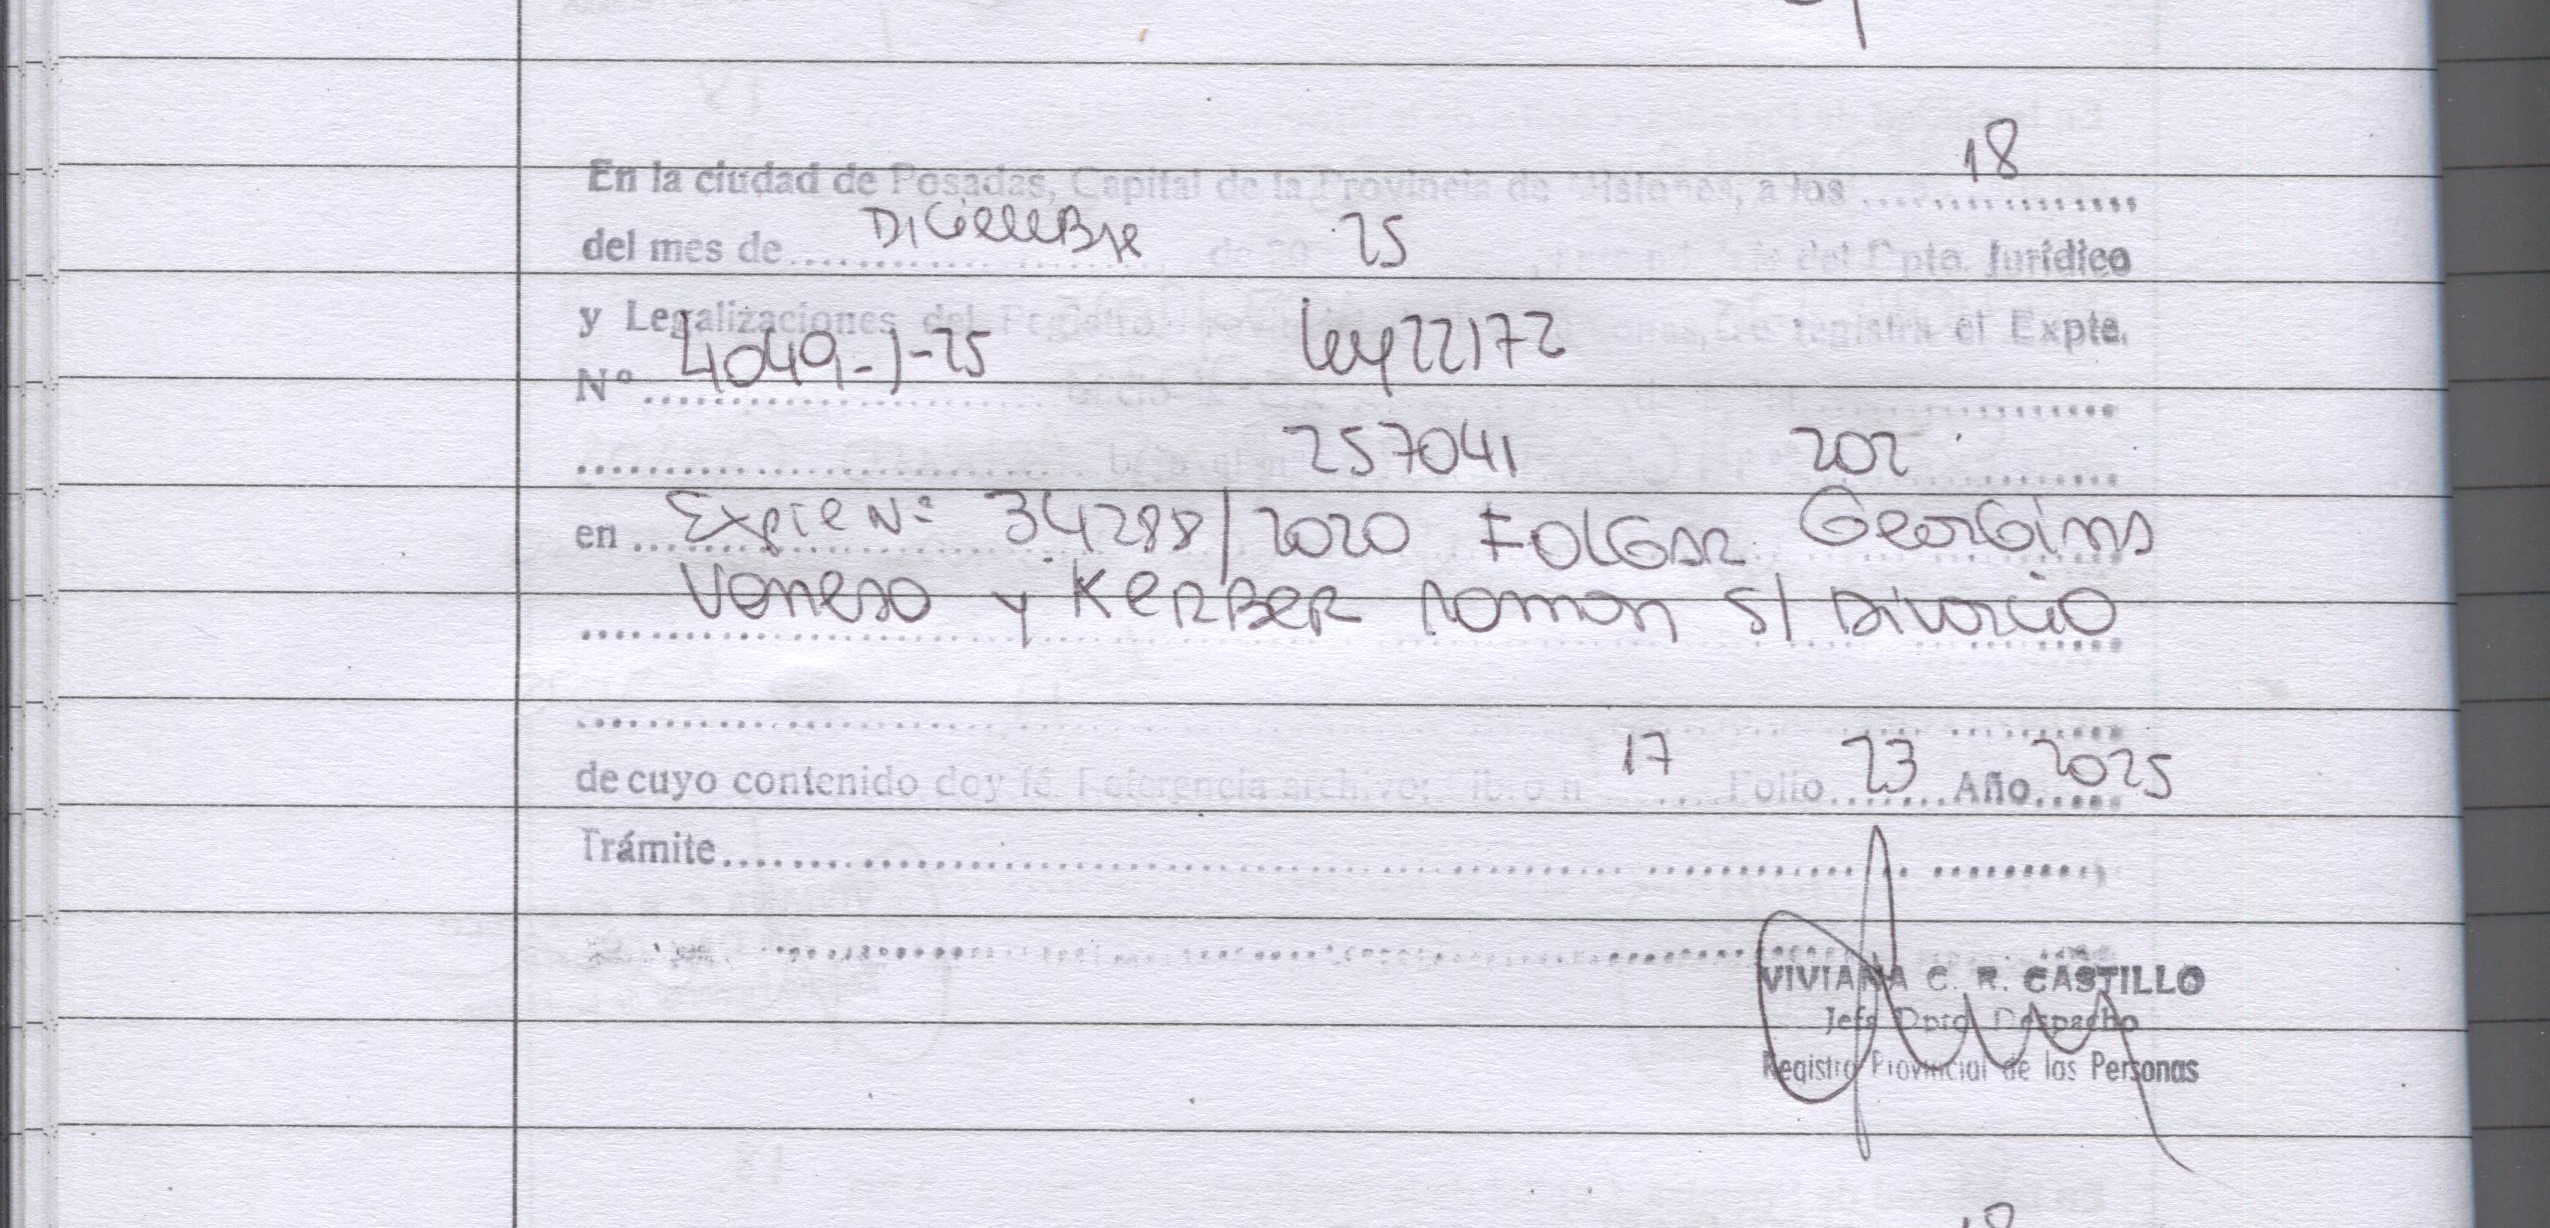 18
En la ciudad de Posadas, Capital de la Provincia de Misiones, a los
del mes de Diciembre de 20 25 del Dpto. Jurídico
y Legalizaciones del Registro se registra el Expte.
Nº 4049-J-25 ley 22172
257041 202
en Expte Nº 34288/2020 FOLGAR Georgina
Vanesa y KERBER Ramon S/ Divorcio
de cuyo contenido doy fé. Referencia archivo: 17 Folio 23 Año 2025
Trámite
VIVIANA C. R. CASTILLO
Jefa Dpto. Despacho
Registro Provincial de las Personas